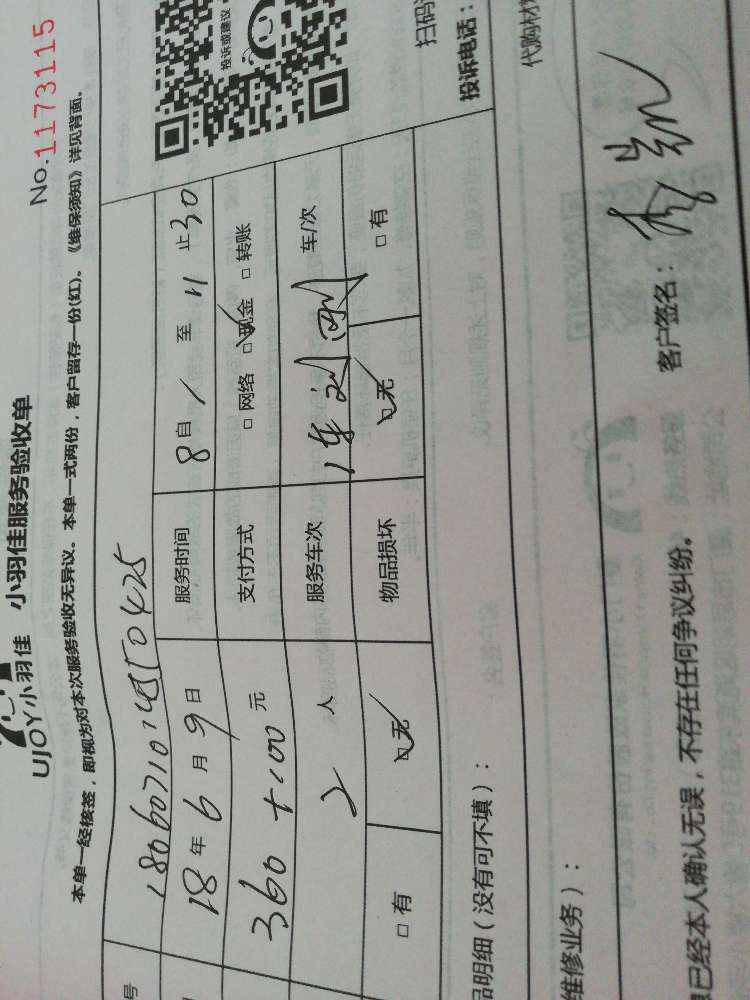 No.1173115
UJOY小羽佳 小羽佳服务验收单
本单一经核签，即视为对本次服务验收无异议。本单一式两份，客户留存一份(红)。《维保须知》详见背面。
投诉或建议
号
18年6月9日 服务时间 8自/至11止30
360+100元 支付方式 □网络 □现金 □转账
2人 服务车次 车/次
□有 □无 物品损坏 □无 □有
扫码
投诉电话：
品明细（没有可不填）：
代购材
维修业务）：
已经本人确认无误，不存在任何争议纠纷。 客户签名：